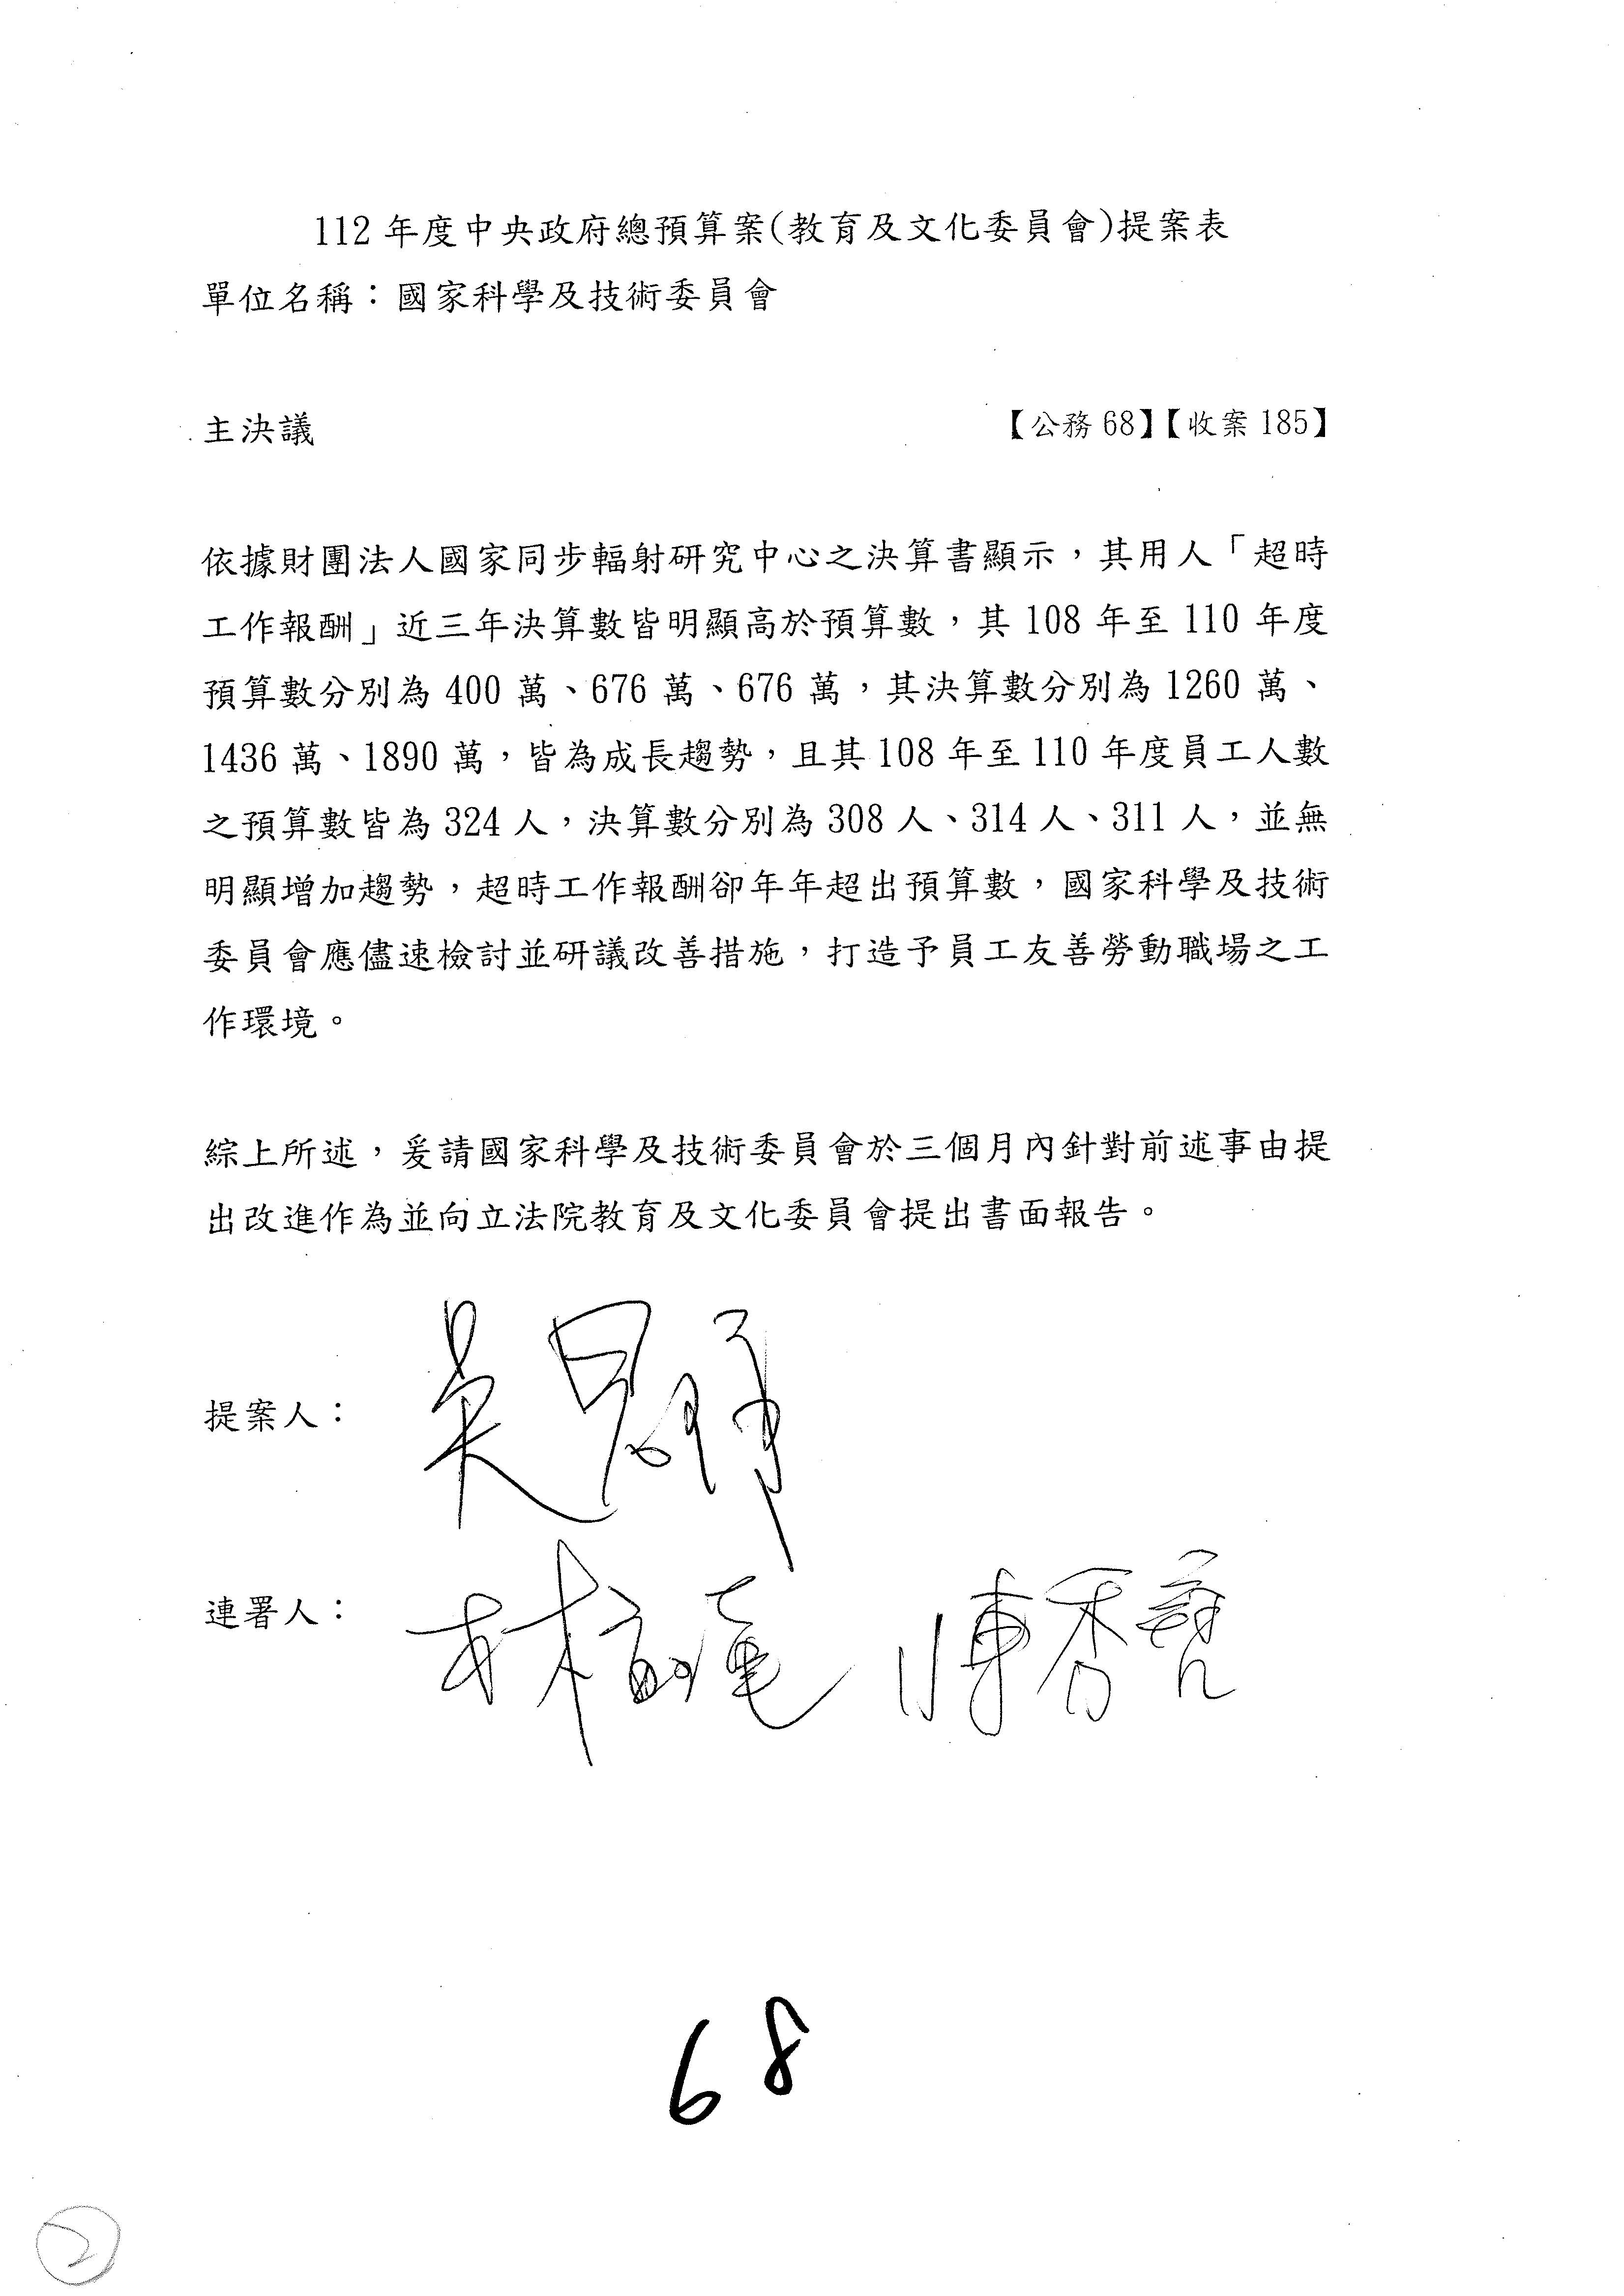 112 年度中央政府總預算案(教育及文化委員會)提案表
單位名稱：國家科學及技術委員會
主決議 【公務 68】【收案 185】
依據財團法人國家同步輻射研究中心之決算書顯示，其用人「超時
工作報酬」近三年決算數皆明顯高於預算數，其 108 年至 110 年度
預算數分別為 400 萬、676 萬、676 萬，其決算數分別為 1260 萬、
1436 萬、1890 萬，皆為成長趨勢，且其 108 年至 110 年度員工人數
之預算數皆為 324 人，決算數分別為 308 人、314 人、311 人，並無
明顯增加趨勢，超時工作報酬卻年年超出預算數，國家科學及技術
委員會應儘速檢討並研議改善措施，打造予員工友善勞動職場之工
作環境。
綜上所述，爰請國家科學及技術委員會於三個月內針對前述事由提
出改進作為並向立法院教育及文化委員會提出書面報告。
提案人：
連署人： 陳秀寳
68
2